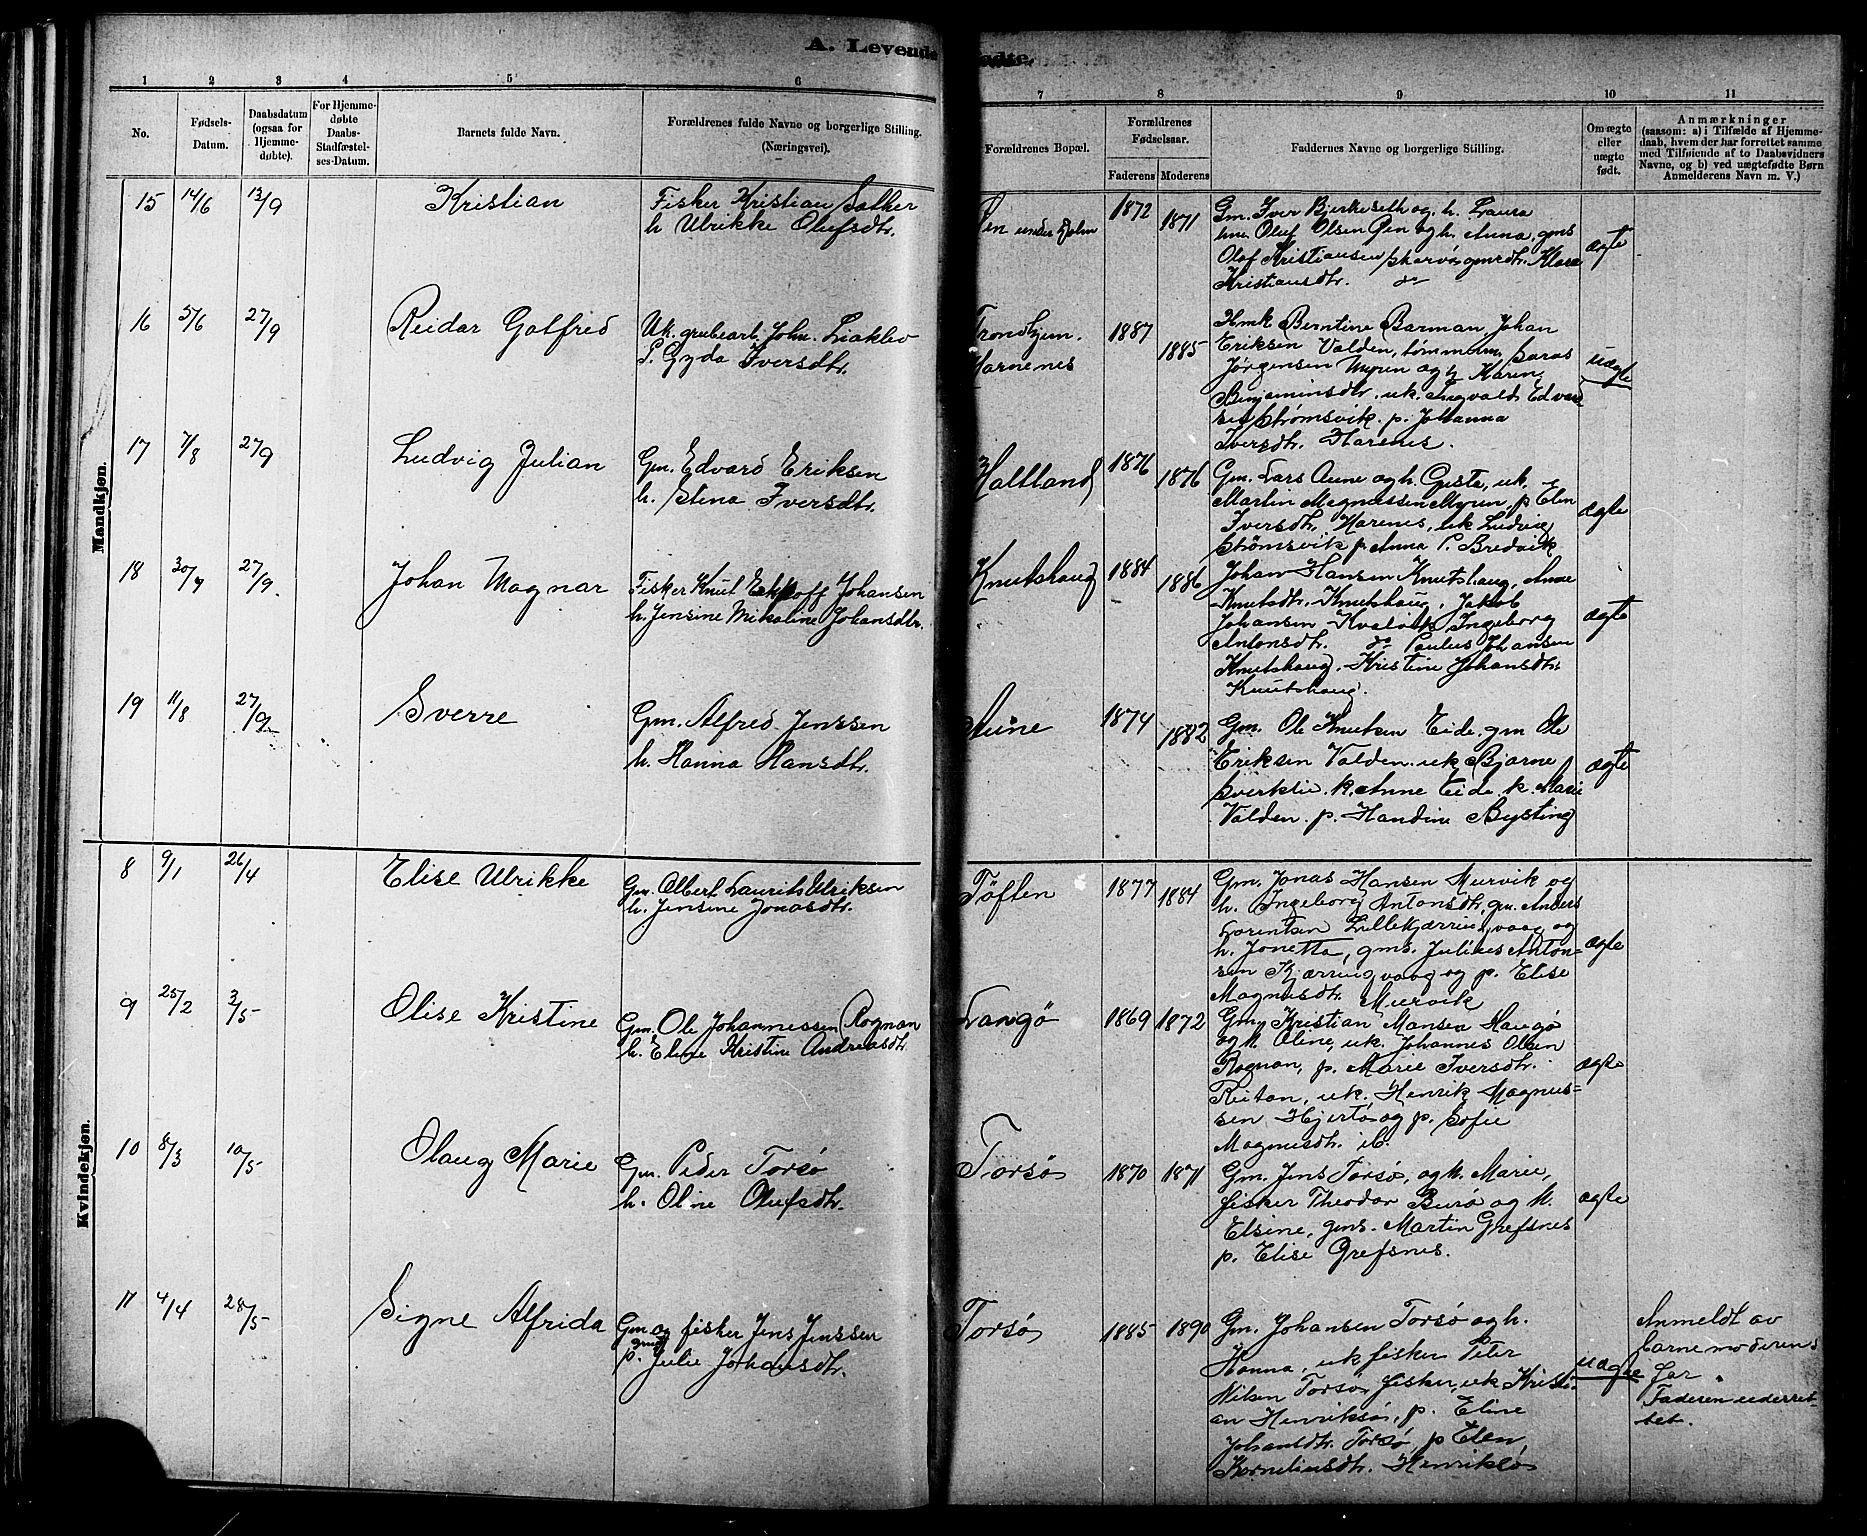 A. Levende
fødte.
1 2 3 4 5 6 7 8 9 10 11
No.
Fødsels-
Datum.
Daabsdatum
(ogsaa for
Hjemme-
døbte).
For Hjemme-
døbte
Daabs-
Stadfæstel-
ses-Datum.
Barnets fulde Navn.
Forældrenes fulde Navne og borgerlige Stilling.
(Næringsvei).
Forældrenes Bopæl.
Forældrenes
Fødselsaar.
Faderens Moderens
Faddernes Navne og borgerlige Stilling.
Om ægte
eller
uægte
født.
Anmærkninger
(saasom: a) i Tilfælde af Hjemme-
daab, hvem der har forrettet samme
med Tilføiende af to Daabsvidners
Navne, og b) ved uægtefødte Børn
Anmelderens Navn m. V.)
Mandkjøn.
15 14/6 13/9 Kristian
Fisker Kristian Sather
h. Ulrikke Olufsdtr.
Øen under Holm
1872 1871
Gm. Iver Bjerkeseth og h. Laura
hm. Oluf Olsen Øen og h. Anna, gms
Olaf Kristiansen Skarvø gmsdtr. Klara
Kristiansdtr. do
ægte
16 5/6 27/9 Reidar Gotfred
Uk. grubearb. John. Liaklev
P. Gyda Iversdtr.
Trondhjem.
Harnenes
1887 1885
Hmk Berntine Barman, Johan
Eriksen Valden, tømmerm. Saras
Jørgensen Myren og h. Karen
Benjaminsdtr. uk. Ingvald Edvard
sen Strømsvik. p. Johanna
Iversdtr. Harenes.
uægte
17 7/8 27/9 Ludvig Julian
Gm. Edvard Eriksen
h. Stina Iversdtr.
Haltland
1876 1876
Gm. Lars Aune og h. Gusta, uk.
Martin Magnussen Myren, p. Elen
Iversdtr. Harenes, uk Ludvig
Strømsvik p. Anna P. Bredvik
ægte
18 30/7 27/9. Johan Magnar
Fisker Knut Ekkoff Johansen
h. Jensine Mikaline Johansdtr.
Knutshaug
1884 1886
Johan Hansen Knutshaug, Anne
Knutsdtr. Knutshaug, Jakob
Johansen Kvalvik Ingeborg
Antonsdtr. do Paulus Johansen
Knutshaug. Kristine Johansdtr.
Knutshaug.
ægte
19 11/8 27/9. Sverre
Gm. Alfred Jenssen
h. Hanna Hansdtr.
Aune
1874 1882
Gm. Ole Knutsen Eide. gm Ole
Eriksen Valden. uk Bjarne
Sverklie. k. Anne Eide. k. Marie
Valden. p. Handine Bysting
ægte
Kvindekjøn.
8 9/1 26/4 Elise Ulrikke
Gm. Albert Laurits Ulriksen
h. Jensine Jonasdtr.
Tøften
1877 1884
Gm. Jonas Hansen Murvik og
h. Ingeborg Antonsdtr, gm. Anders
Lorentsen Lillekjærringvaag og
h. Jonetta, gms. Julius Anton-
sen Kjærringvaag og p. Elise
Magnusdtr. Murvik
ægte
9 25/2 3/5 Olise Kristine
Gm. Ole Johannessen Rognan
h. Eline Kristine Andreasdtr.
Langø
1869 1872
Gm. Kristian Hansen Haugø
og h. Oline, uk. Johannes Olsen
Rognan, p. Marie Iversdtr.
Reitan, uk. Henrik Magnus-
sen Hjertø og p. Sofie
Magnusdtr. ib.
ægte
10 8/3 10/5 Olaug Marie
Gm. Peder Torsø
h. Oline Olufsdtr.
Torsø
1870 1871
Gm. Jens Torsø, og h. Marie,
fisker Theodor Burø og h.
Elsine, gms. Martin Grefsnes
p. Elise Grefsnes.
ægte
11 4/4 28/5 Signe Alfrida
Gm. og fisker Jens Jenssen
gmdtr
p. Julie Johansdtr.
Torsø
1885 1890
Gm. Johansen Torsø og h.
Hanna, uk fisker Peter
Nilsen Torsø fisker, uk Kristi-
an Henriksø, p. Eline
Johansdtr. Torsø, p Elen
Korneliusdtr. Henriksø
uægte
Anmeldt av
barnemoderens
far
Faderen underret-
tet.